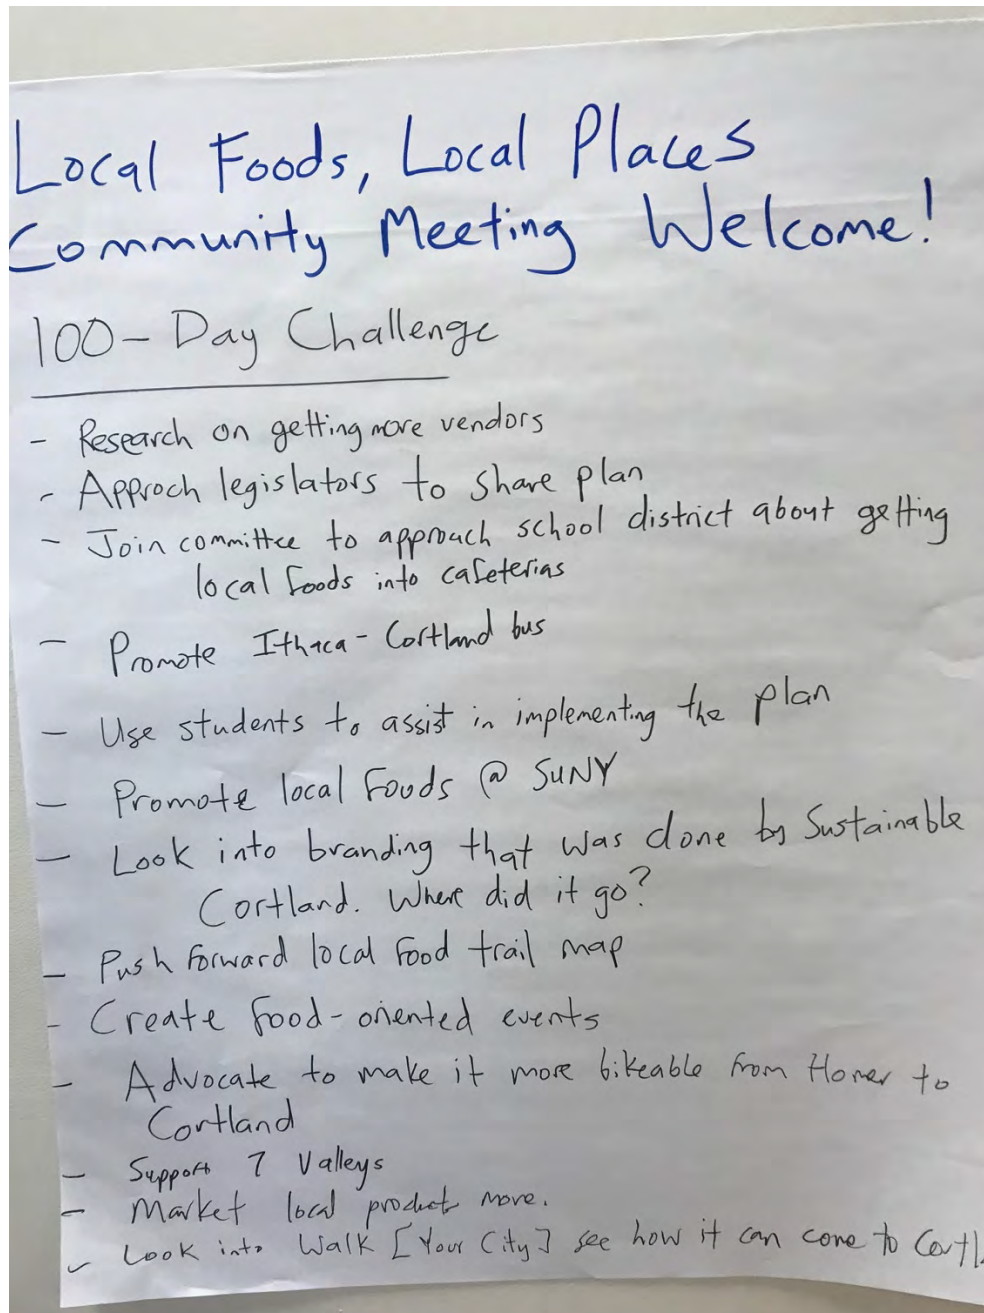 Local Foods, Local Places
Community Meeting Welcome!
100-Day Challenge
- Research on getting more vendors
- Approch legislators to share plan
- Join committee to approach school district about getting
local foods into cafeterias
- Promote Ithaca-Cortland bus
- Use students to assist in implementing the plan
- Promote local foods @ SUNY
- Look into branding that was done by Sustainable
Cortland. Where did it go?
- Push forward local food trail map
- Create food-oriented events
- Advocate to make it more bikeable from Homer to
Cortland
- Support 7 Valleys
- Market local product more.
- Look into Walk [Your City] see how it can come to Cortl